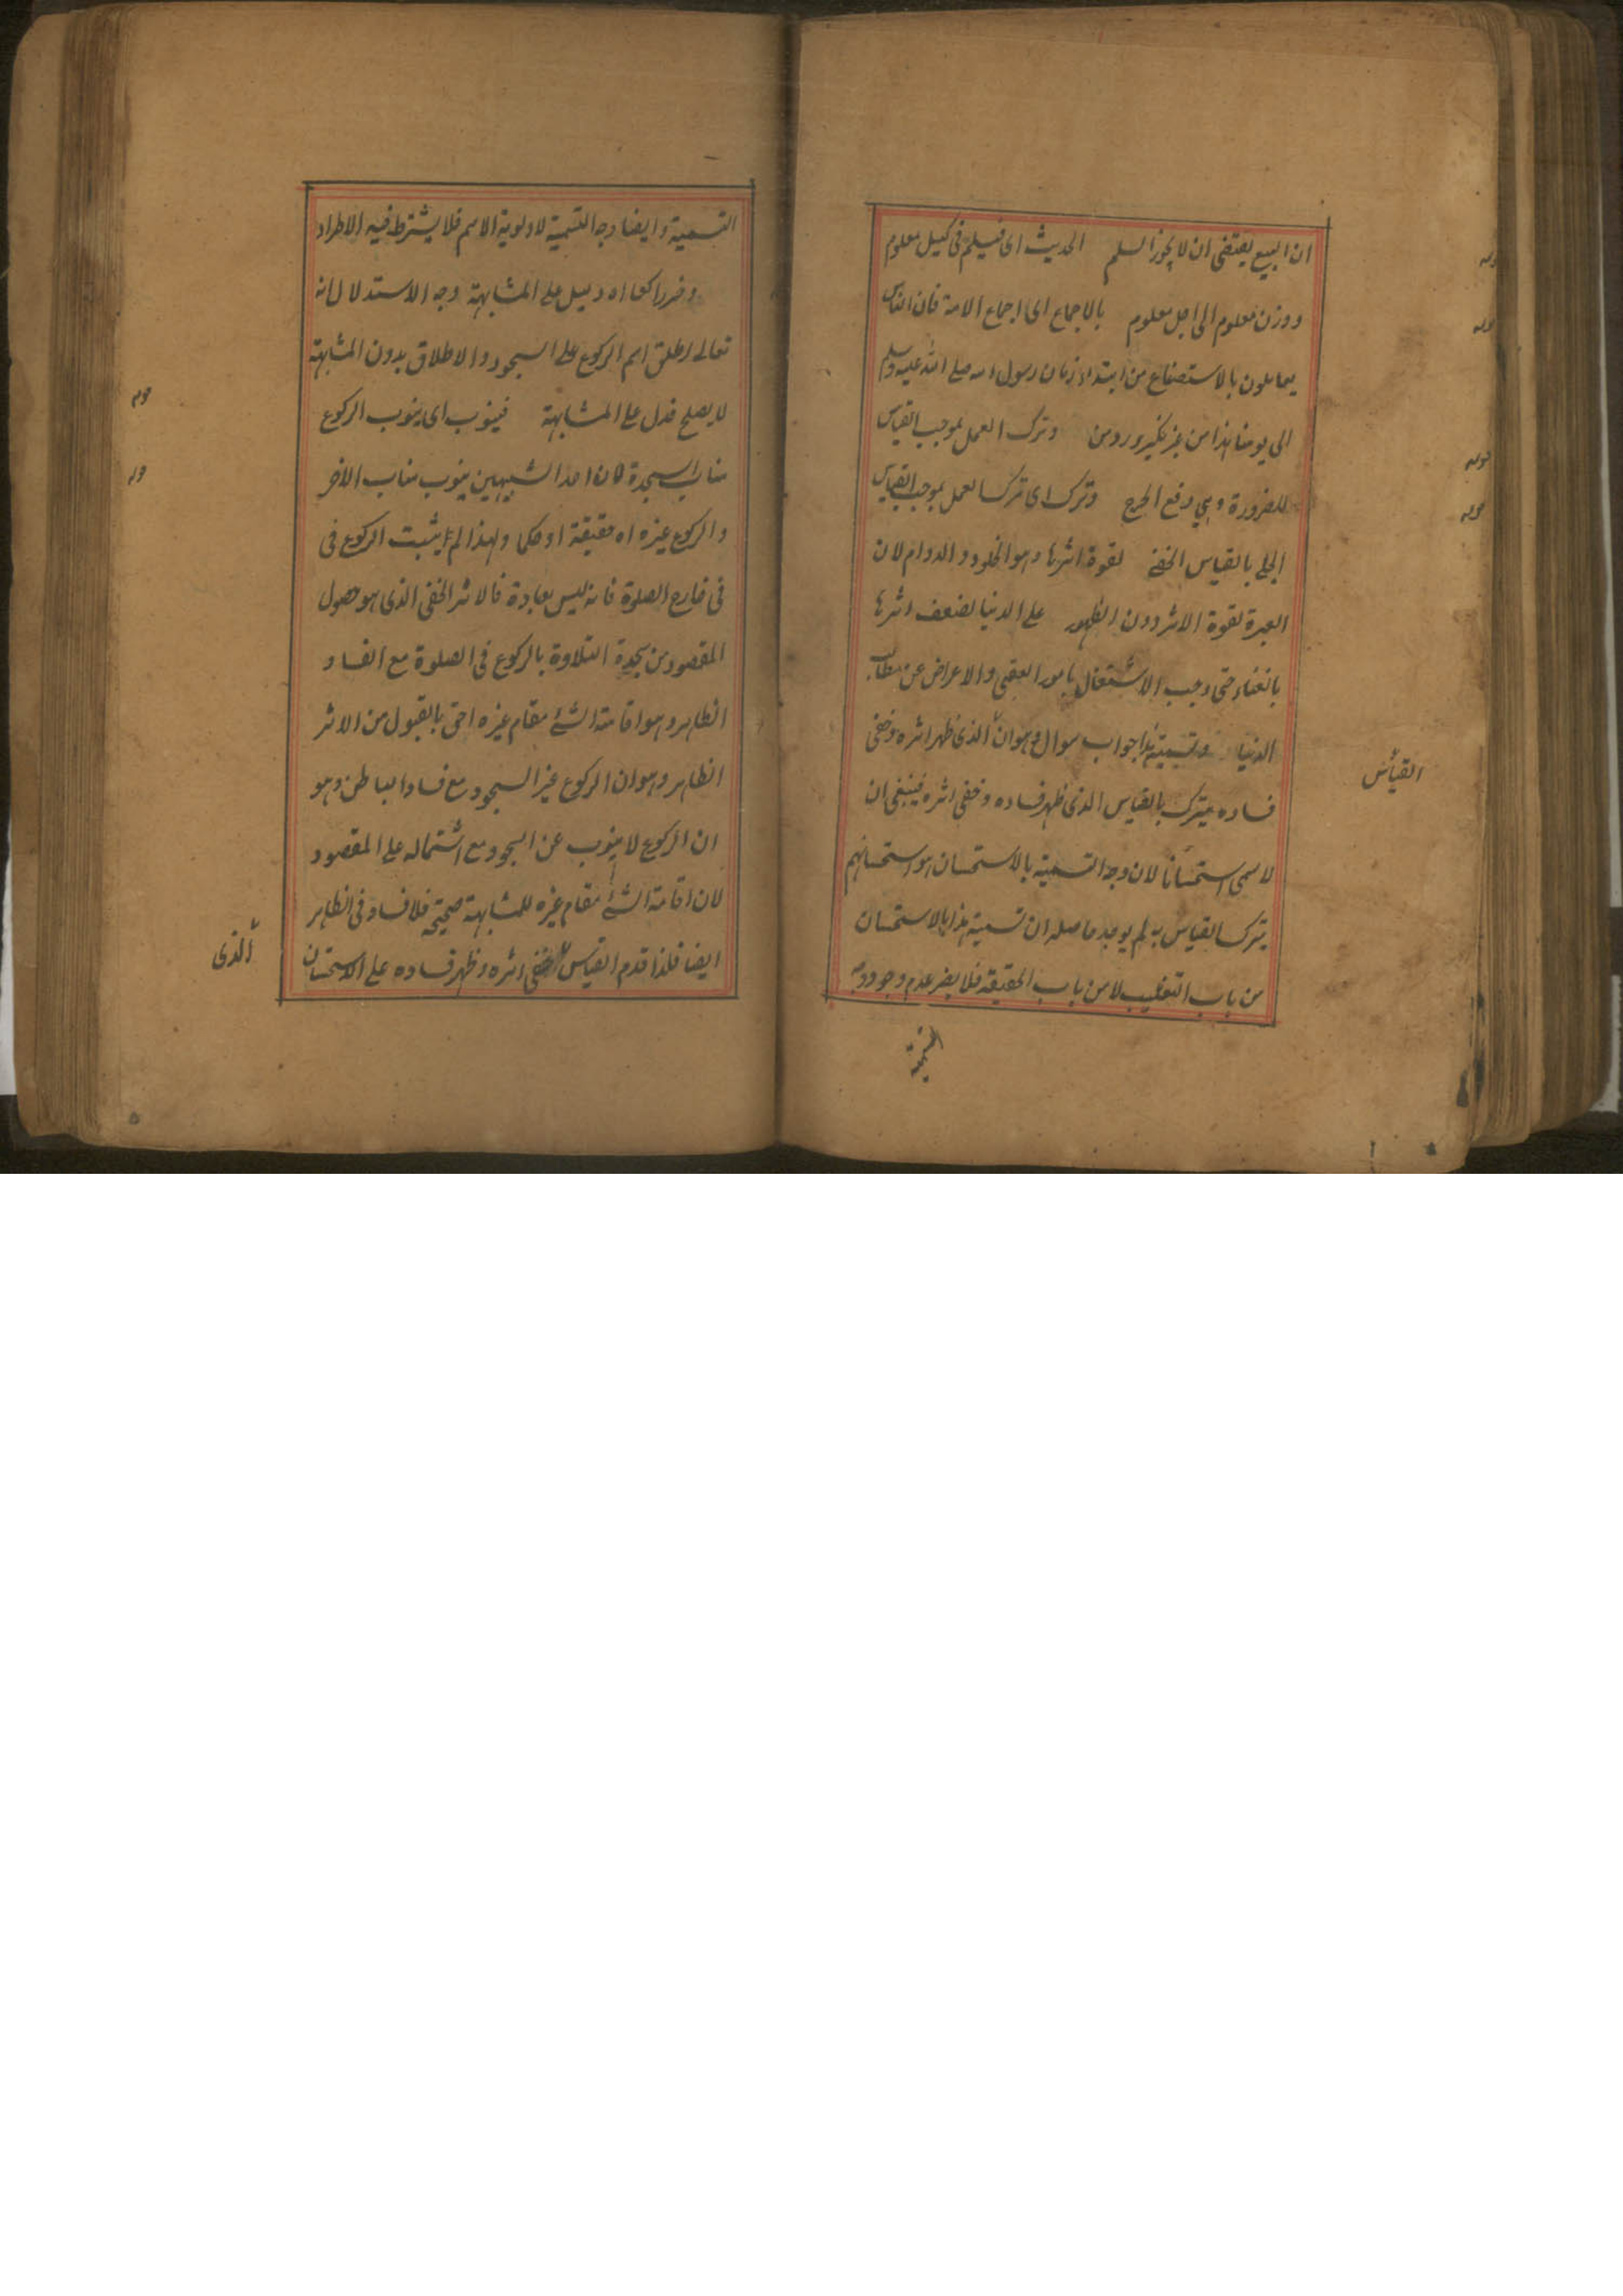 ان البيع يقتضى ان لا يجوز السلم الحديث اى فليسلم فى كيل معلوم
ووزن معلوم الى اجل معلوم بالاجماع اى اجماع الامة فان الناس
يعاملون بالاستصناع من ابتداء زمان رسول الله صلى الله عليه وسلم
الى يومنا هذا من غير نكير ورد من وترك العمل بموجب القياس
للضرورة وهي دفع الحرج وترك اى ترك العمل بموجب القياس
الجلى بالقياس الخفى لقوة اثرها وهو الخلود والدوام لان
العبرة لقوة الاثر دون الظهور على الدنيا لضعف اثرها
بالفناء حتى وجب الاشتغال بامور العقبى والاعراض عن مطالب
الدنيا وتسمية هذا جواب سوال وهو ان الذى ظهر اثره وخفى
فساده يترك بالقياس الذى ظهر فساده وخفى اثره فينبغى ان
القياس
لا يسمى استحسانا لان وجه التسمية بالاستحسان هو استحسانهم
بترك القياس به لم يوجد حاصله ان تسمية هذا بالاستحسان
من باب التغليب لا من باب الحقيقة فلا يضر عدم وجود وجه
التسمية
قوله
قوله
قوله
قوله
التسمية وايضا وجه التسمية لاولوية الاسم فلا يشترط فيه الاطراد
وخر راكعا اه دليل على المشابهة وجه الاستدلال انه
تعالى اطلق اسم الركوع على السجود والاطلاق بدون المشابهة
لا يصلح فدل على المشابهة فينوب اى ينوب الركوع
مناب السجدة كان احد الشبيهين ينوب مناب الآخر
والركوع غيره اه حقيقة او حكما ولهذا لم يثبت الركوع فى
فى خارج الصلوة فانه ليس بعبادة فالاثر الخفى الذى هو حصول
المقصود من سجدة التلاوة بالركوع فى الصلوة مع الفساد
الظاهر وهو اقامة الشئ مقام غيره احق بالقبول من الاثر
الظاهر وهو ان الركوع غير السجود مع فساد الباطن وهو
ان الركوع لا ينوب عن السجود مع اشتماله على المقصود
لان اقامة الشئ مقام غيره للمشابهة صحيحة فلا فساد فى الظاهر
ايضا فلذا قدم القياس خفى اثره وظهر فساده على الاستحسان
الذى
قوله
قوله